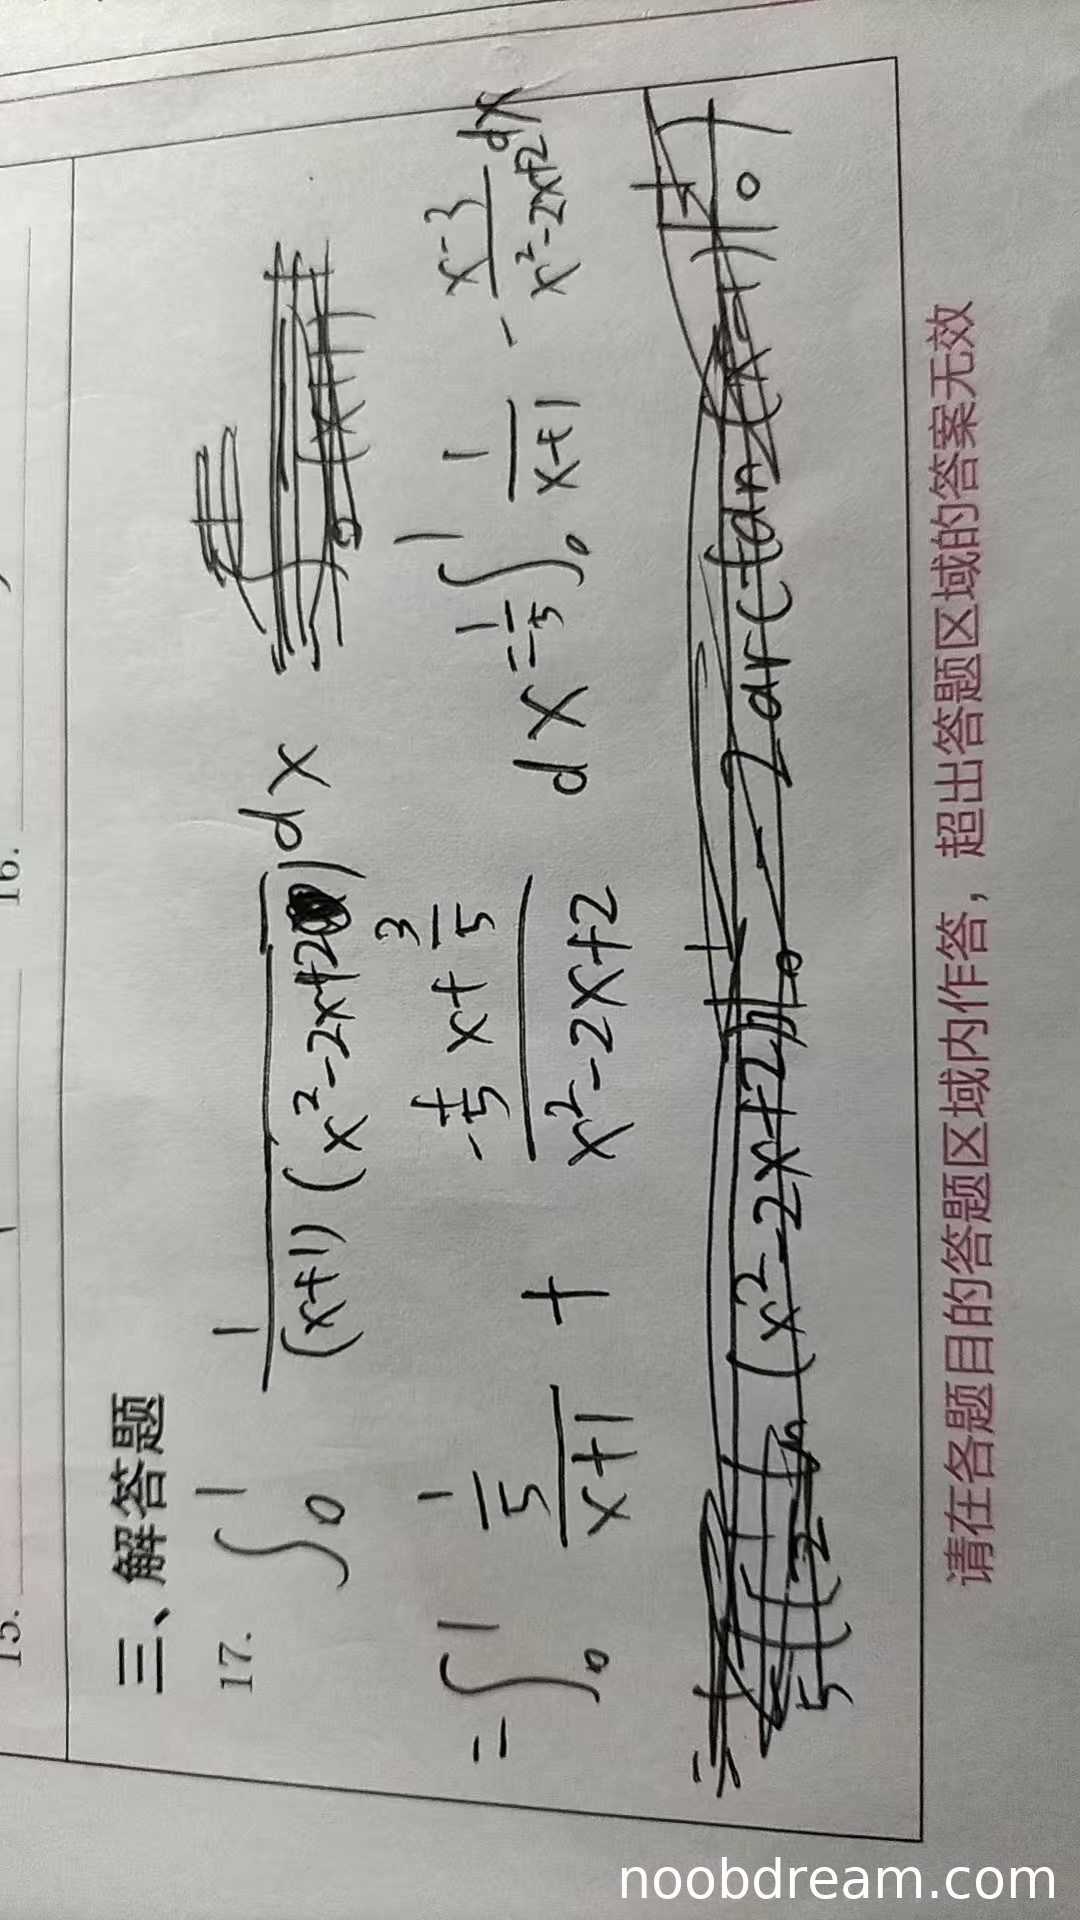 15.
16.
三、解答题
17. ∫₀¹ 1/((x+1)(x²-2x+2)) dx
= ∫₀¹ (1/5)/(x+1) + (-1/5 x + 3/5)/(x²-2x+2) dx = 1/5 ∫₀¹ 1/(x+1) - (x-3)/(x²-2x+2) dx
(x²-2x+2)|₀¹ - 2arctan(x-1)|₀¹)
请在各题目的答题区域内作答，超出答题区域的答案无效
noobdream.com